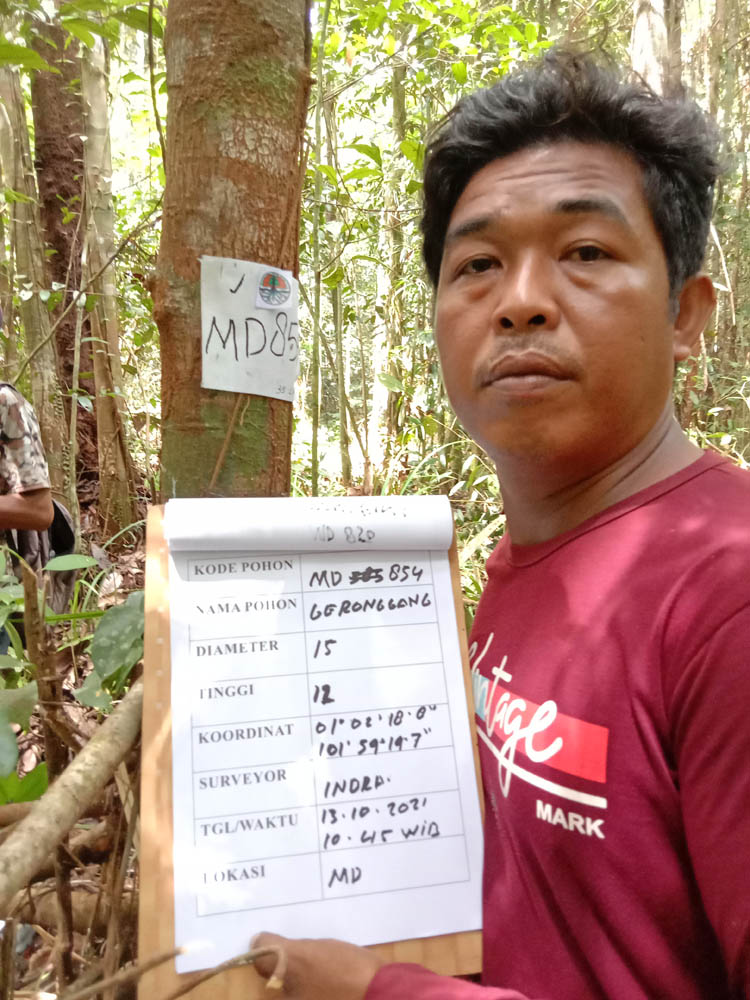 MD85
MD 820
KODE POHON MD 585 854
NAMA POHON GERONGGANG
DIAMETER 15
TINGGI 12
KOORDINAT 01° 02' 18.8"
101° 59' 19.7"
SURVEYOR INDRA.
TGL/WAKTU 13.10.2021
10.45 WIB
LOKASI MD
Vantage
MARK